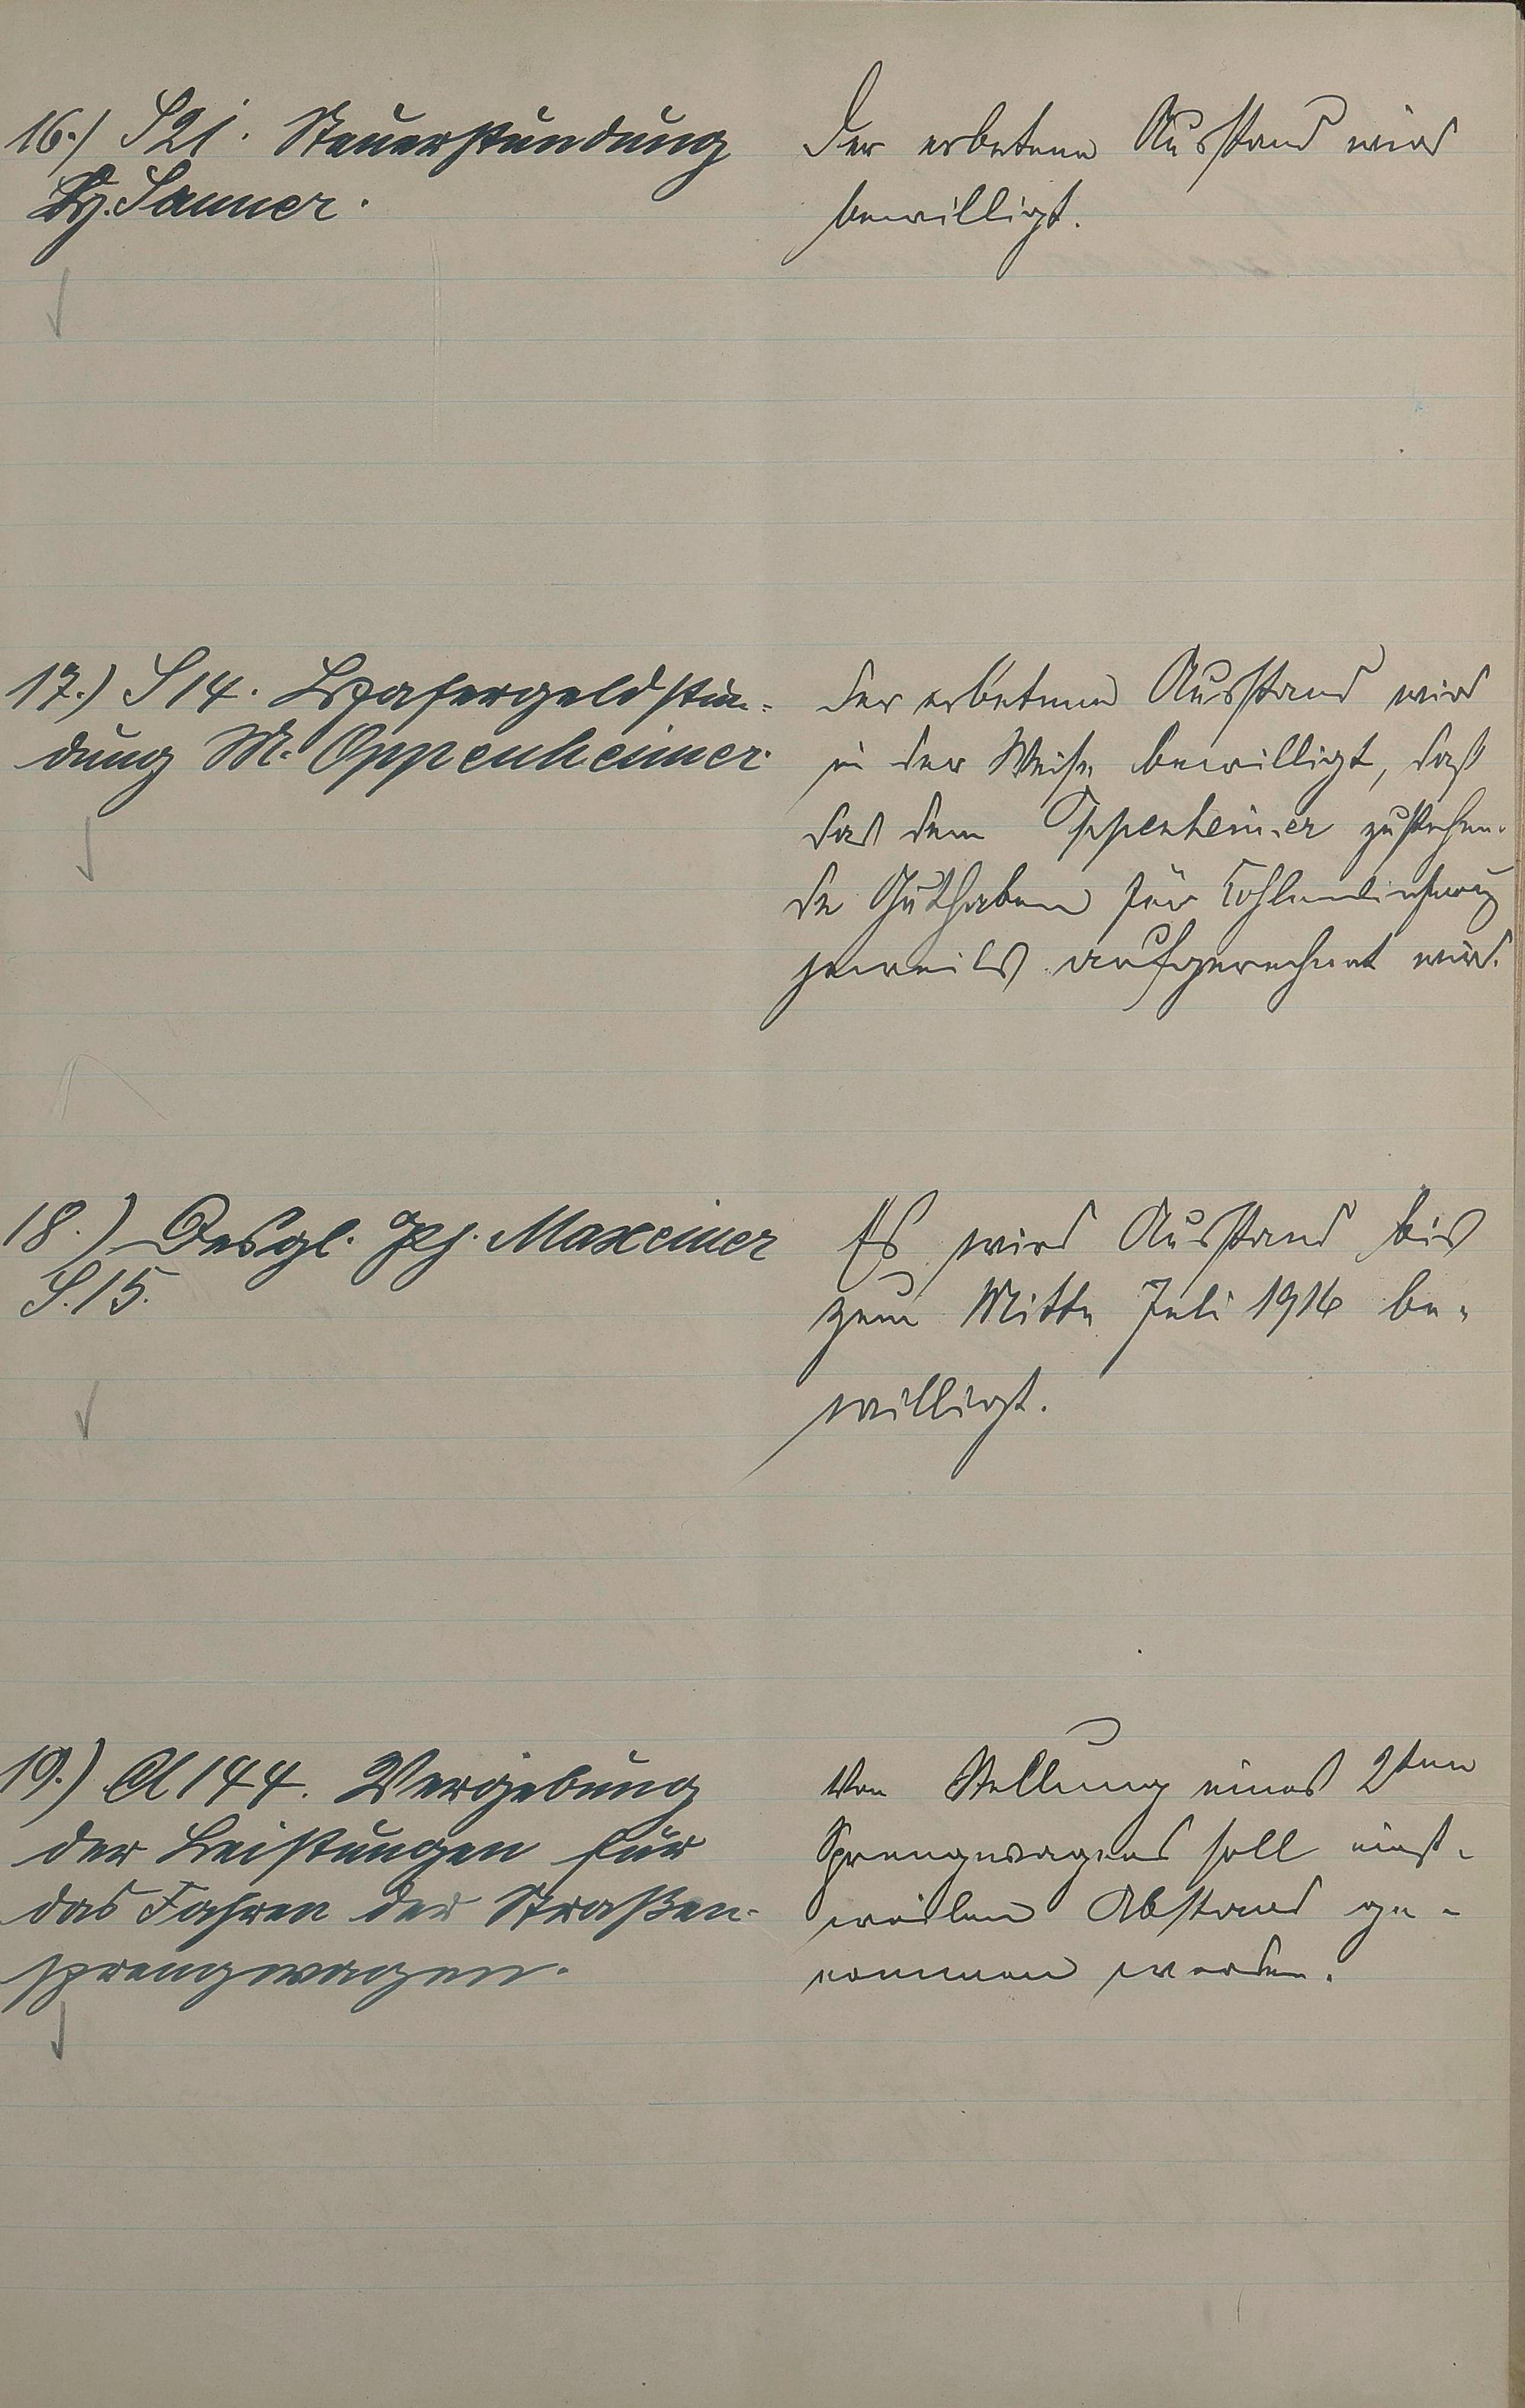 16.) S 21. Steuerstundung
Sanner.
Der erbetene Ausstand wird
bewilligt.
17.) S 14. geldstun-
dung M. Oppenheimer.
Der erbetene Ausstand wird
in der Weise bewilligt, daß
das dem Oppenheimer zustehen-
de Guthaben für Kohlenlieferung
jeweils aufgerechnet wird.
18.) Desgl. Maxeiner
S. 15.
Es wird Ausstand bis
zum Mitte Juli 1916 be-
willigt.
19.) A 144. Vergebung
der Leistungen für
das Fahren der Straßen-
sprengwagen.
Von Stellung eines 2ten
Sprengwagens soll einst-
weilen Abstand ge-
nommen werden.